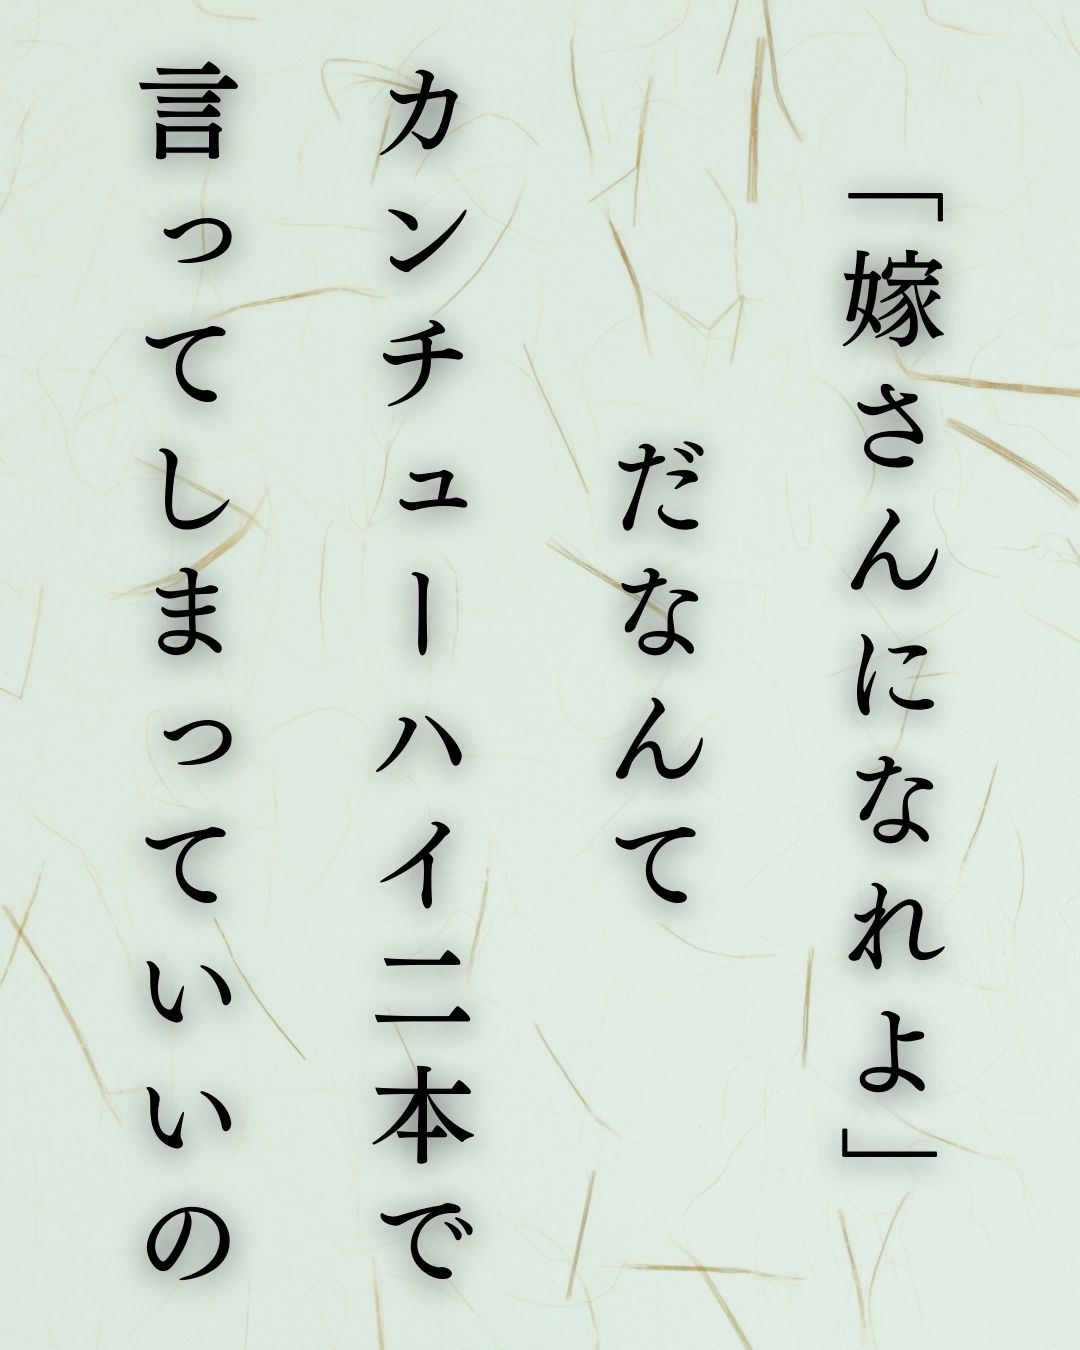 「嫁さんになれよ」
だなんて
カンチューハイ二本で
言ってしまっていいの